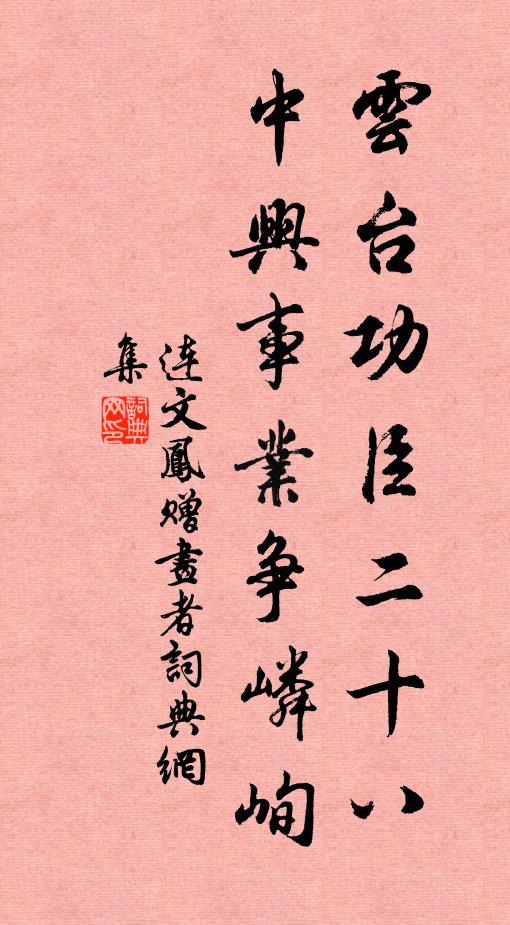 雲台功臣二十八
中興事業争嶙峋
连文鳳贈畫者詞典網
集
詞典网印